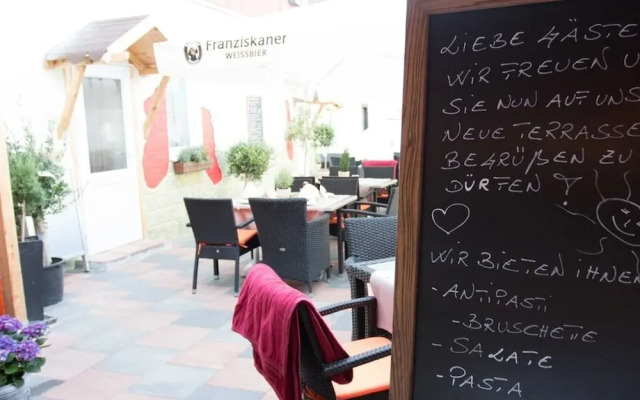 Franziskaner
WEISSBIER
LIEBE GÄSTE
WIR TREUEN U
SIE NUN AUF UNS
NEUE TERRASSE
BEGRÜßEN ZU
DÜRTEN
WIR BIETEN IHNEN
- ANTIPASTI
- BRUSCHETTE
- SALATE
- PASTA